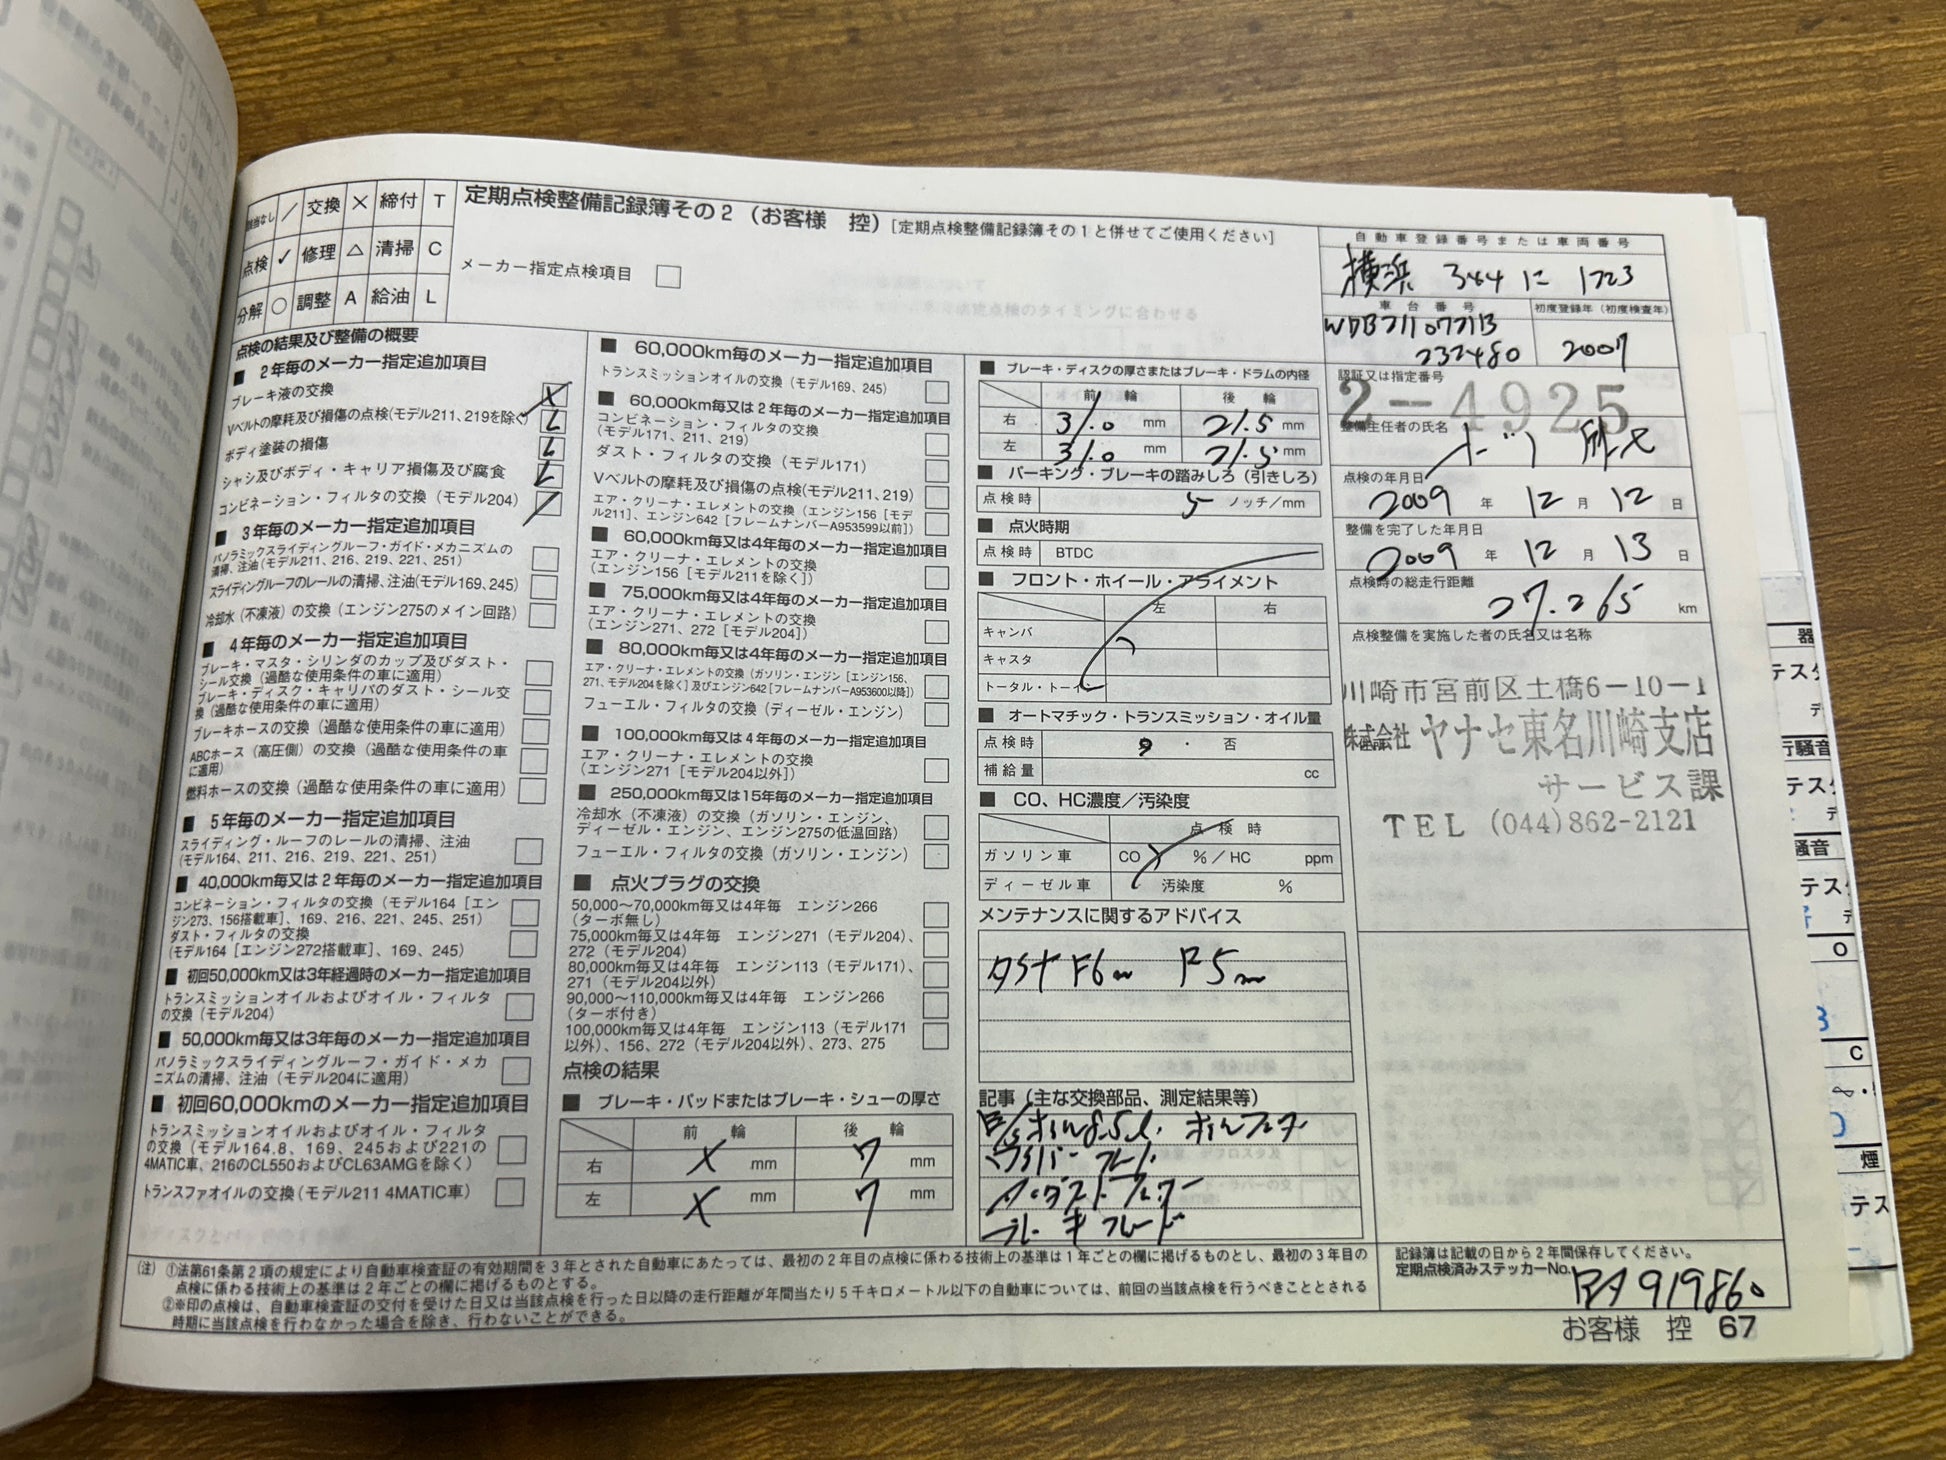 該当なし ／ 交換 × 締付 T
点検 ✓ 修理 △ 清掃 C
分解 ○ 調整 A 給油 L
定期点検整備記録簿その2（お客様 控）[定期点検整備記録簿その1と併せてご使用ください]
メーカー指定点検項目 □
点検の結果及び整備の概要
■ 2年毎のメーカー指定追加項目
ブレーキ液の交換
Vベルトの摩耗及び損傷の点検(モデル211、219を除く)
ボディ塗装の損傷
シャシ及びボディ・キャリア損傷及び腐食
コンビネーション・フィルタの交換（モデル204）
■ 3年毎のメーカー指定追加項目
パノラミックスライディングルーフ・ガイド・メカニズムの
清掃、注油（モデル211、216、219、221、251）
スライディングルーフのレールの清掃、注油(モデル169、245)
冷却水（不凍液）の交換（エンジン275のメイン回路）
■ 4年毎のメーカー指定追加項目
ブレーキ・マスタ・シリンダのカップ及びダスト・
シール交換（過酷な使用条件の車に適用）
ブレーキ・ディスク・キャリパのダスト・シール交
換（過酷な使用条件の車に適用）
ブレーキホースの交換（過酷な使用条件の車に適用）
ABCホース（高圧側）の交換（過酷な使用条件の車
に適用）
燃料ホースの交換（過酷な使用条件の車に適用）
■ 5年毎のメーカー指定追加項目
スライディング・ルーフのレールの清掃、注油
（モデル164、211、216、219、221、251）
■ 40,000km毎又は2年毎のメーカー指定追加項目
コンビネーション・フィルタの交換（モデル164［エン
ジン273、156搭載車］、169、216、221、245、251）
ダスト・フィルタの交換
（モデル164［エンジン272搭載車］、169、245）
■ 初回50,000km又は3年経過時のメーカー指定追加項目
トランスミッションオイルおよびオイル・フィルタ
の交換（モデル204）
■ 50,000km毎又は3年毎のメーカー指定追加項目
パノラミックスライディングルーフ・ガイド・メカ
ニズムの清掃、注油（モデル204に適用）
■ 初回60,000kmのメーカー指定追加項目
トランスミッションオイルおよびオイル・フィルタ
の交換（モデル164.8、169、245および221の
4MATIC車、216のCL550およびCL63AMGを除く）
トランスファオイルの交換（モデル211 4MATIC車）
■ 60,000km毎のメーカー指定追加項目
トランスミッションオイルの交換（モデル169、245）
■ 60,000km毎又は2年毎のメーカー指定追加項目
コンビネーション・フィルタの交換
（モデル171、211、219）
ダスト・フィルタの交換（モデル171）
Vベルトの摩耗及び損傷の点検(モデル211、219)
エア・クリーナ・エレメントの交換（エンジン156［モデ
ル211］、エンジン642［フレームナンバーA953599以前］）
■ 60,000km毎又は4年毎のメーカー指定追加項目
エア・クリーナ・エレメントの交換
（エンジン156［モデル211を除く］）
■ 75,000km毎又は4年毎のメーカー指定追加項目
エア・クリーナ・エレメントの交換
（エンジン271、272［モデル204］）
■ 80,000km毎又は4年毎のメーカー指定追加項目
エア・クリーナ・エレメントの交換（ガソリン・エンジン［エンジン156、
271、モデル204を除く］及びエンジン642［フレームナンバーA953600以降］）
フューエル・フィルタの交換（ディーゼル・エンジン）
■ 100,000km毎又は4年毎のメーカー指定追加項目
エア・クリーナ・エレメントの交換
（エンジン271［モデル204以外］）
■ 250,000km毎又は15年毎のメーカー指定追加項目
冷却水（不凍液）の交換（ガソリン・エンジン、
ディーゼル・エンジン、エンジン275の低温回路）
フューエル・フィルタの交換（ガソリン・エンジン）
■ 点火プラグの交換
50,000～70,000km毎又は4年毎 エンジン266
（ターボ無し）
75,000km毎又は4年毎 エンジン271（モデル204）、
272（モデル204）
80,000km毎又は4年毎 エンジン113（モデル171）、
271（モデル204以外）
90,000～110,000km毎又は4年毎 エンジン266
（ターボ付き）
100,000km毎又は4年毎 エンジン113（モデル171
以外）、156、272（モデル204以外）、273、275
点検の結果
■ ブレーキ・パッドまたはブレーキ・シューの厚さ
前 輪 後 輪
右 × mm 7 mm
左 × mm 7 mm
■ ブレーキ・ディスクの厚さまたはブレーキ・ドラムの内径
前 輪 後 輪
右 31.0 mm 21.5 mm
左 31.0 mm 21.5 mm
■ パーキング・ブレーキの踏みしろ（引きしろ）
点検時 5 ノッチ/mm
■ 点火時期
点検時 BTDC
■ フロント・ホイール・アライメント
左 右
キャンバ
キャスタ
トータル・トーイン
■ オートマチック・トランスミッション・オイル量
点検時 ・ 否
補給量 cc
■ CO、HC濃度／汚染度
点検時
ガソリン車 CO %／HC ppm
ディーゼル車 汚染度 %
メンテナンスに関するアドバイス
F6m R5m
記事（主な交換部品、測定結果等）
オイル8.5L. オイルフィルター
ワイパーブレード
ダストフィルター
ブレーキフルード
自動車登録番号または車両番号
横浜 344 に 1723
車台番号
WDB2110721B
232480
初度登録年（初度検査年）
2007
認証又は指定番号
2-4925
整備主任者の氏名
点検の年月日
2009 年 12 月 12 日
整備を完了した年月日
2009 年 12 月 13 日
点検時の総走行距離
27.265 km
点検整備を実施した者の氏名又は名称
川崎市宮前区土橋6-10-1
株式会社 ヤナセ東名川崎支店
サービス課
TEL (044)862-2121
記録簿は記載の日から2年間保存してください。
定期点検済みステッカーNo.
RA919860
（注）①法第61条第2項の規定により自動車検査証の有効期間を3年とされた自動車にあたっては、最初の2年目の点検に係わる技術上の基準は1年ごとの欄に掲げるものとし、最初の3年目の
点検に係わる技術上の基準は2年ごとの欄に掲げるものとする。
②※印の点検は、自動車検査証の交付を受けた日又は当該点検を行った日以降の走行距離が年間当たり5千キロメートル以下の自動車については、前回の当該点検を行うべきこととされる
時期に当該点検を行わなかった場合を除き、行わないことができる。
お客様 控 67